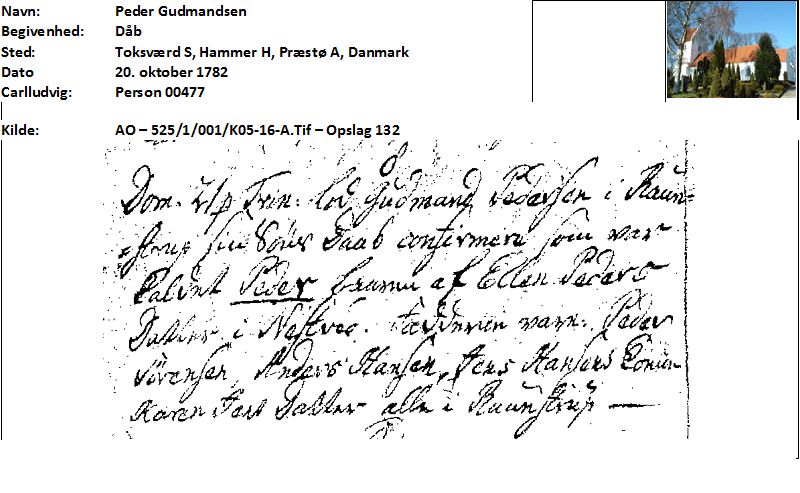 Navn: Peder Gudmandsen
Begivenhed: Dåb
Sted: Toksværd S, Hammer H, Præstø A, Danmark
Dato 20. oktober 1782
Carlludvig: Person 00477
Kilde: AO – 525/1/001/K05-16-A.Tif – Opslag 132
Dom. 21 p Trin: lod Gudmand Pedersen i Raun=
=strup sin Søns Daab confirmere som var
kaldet Peder baaren af Ellen Peders
Datter i Nestved. Fadderne vare: Peder
Sörensen, Anders Hansen, Jens Hansens Konen
Karen Jens Datter alle i Raunstrup —